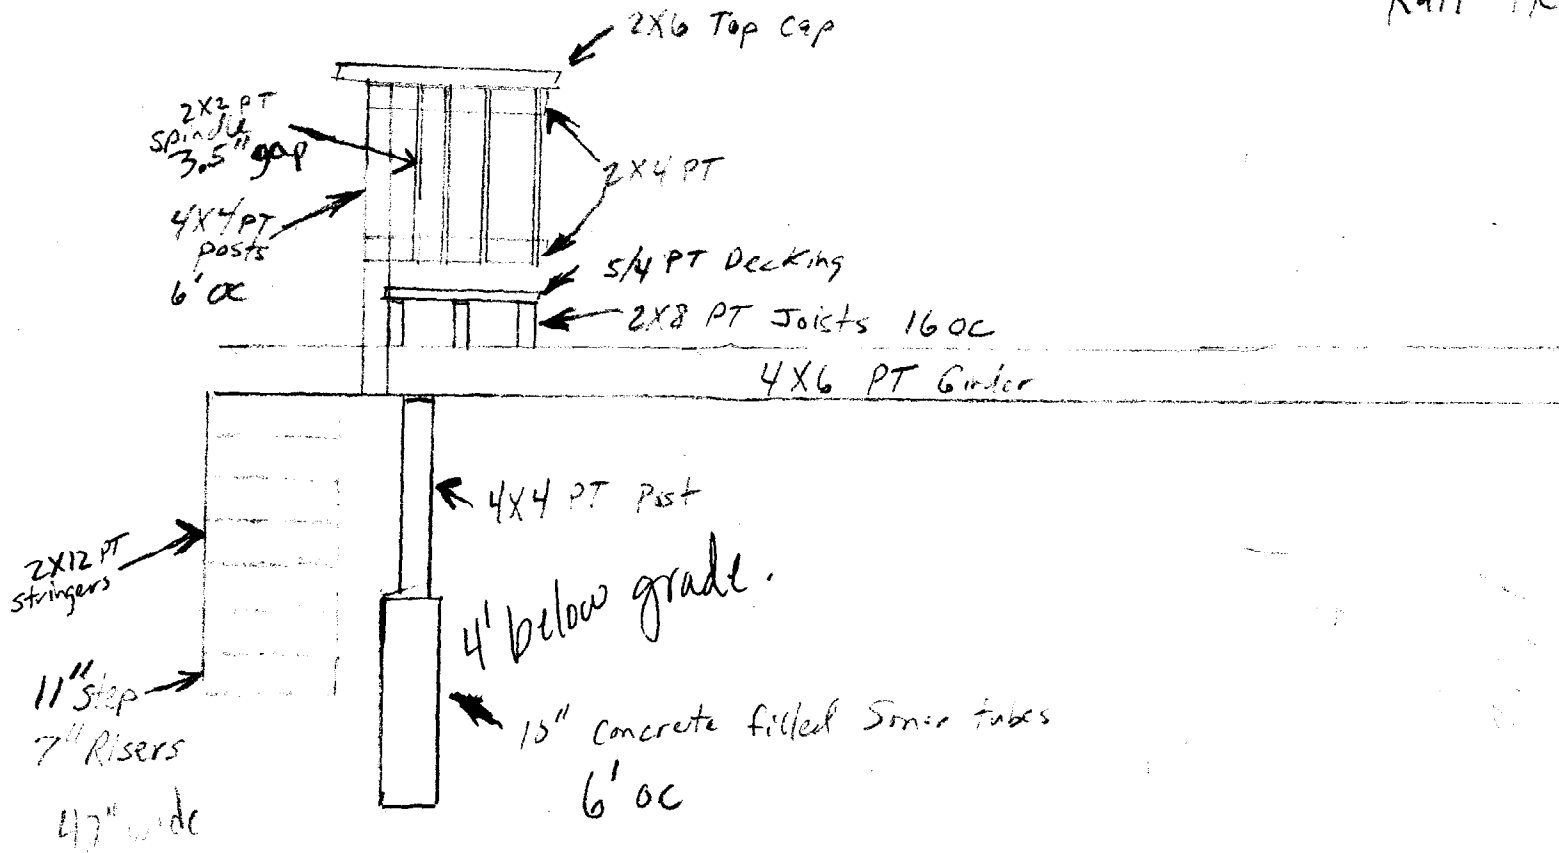 Rail
2X6 Top Cap
2X2 PT
spindle
3.5" gap
2X4 PT
4X4 PT
posts
6' OC
5/4 PT Decking
2X8 PT Joists 16 OC
4X6 PT Girder
4X4 PT Post
2X12 PT
stringers
4' below grade.
11" step
7" Risers
47" wide
10" Concrete filled Sonar tubes
6' OC